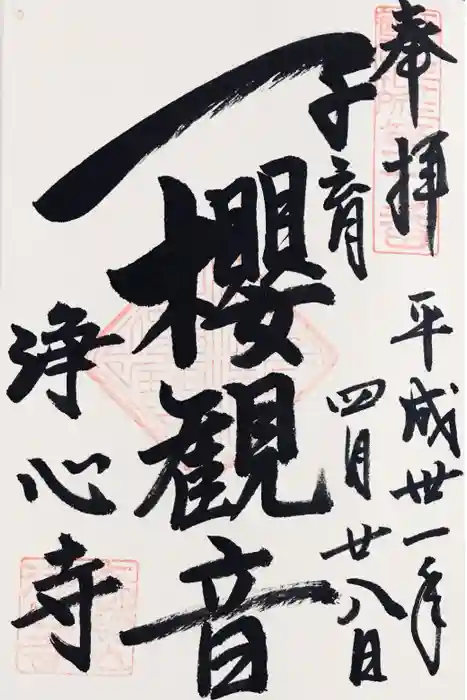 奉拝
平成卅一年
四月廿八日
子育
櫻観音
浄心寺